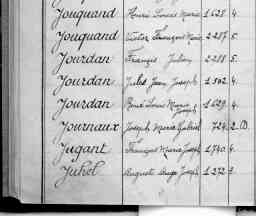 Jouquand Henri Louis Marie 1628 4.
Jouquand Victor François Marie 2287 5.
Jourdan François Julien 2288 5.
Jourdan Jules Jean Joseph 1562 4.
Jourdan René Louis Marie Joseph 1629 4.
Journaux Joseph Marie Gabriel 724 2.D.
Jugant François Marie Joseph 1740 4.
Juhel Auguste Ange Joseph 1272 3.